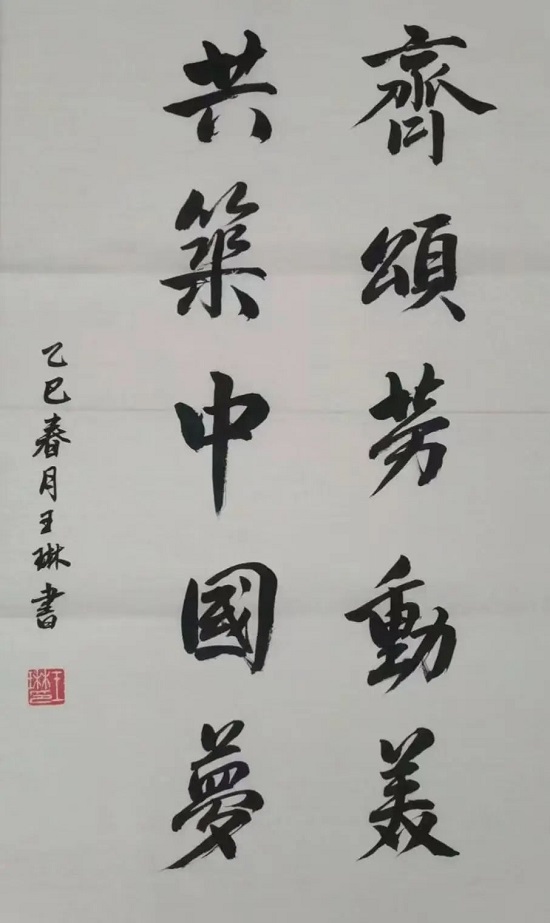 齊頌芳動美
共築中國夢
乙巳春月王琳書
王琳